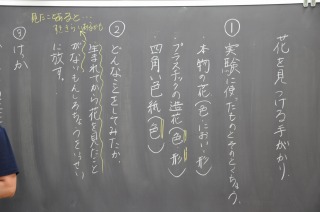 花を見つける手がかり
① 実験に使ったものとそのとくちょう。
・本物の花(色・におい・形)
・プラスチックの造花(色・形)
・四角い色紙(色)
② どんなことをしてみたか。
生まれてから花を見たこと
がないもんしろちょうを
に放す。
③ けっか